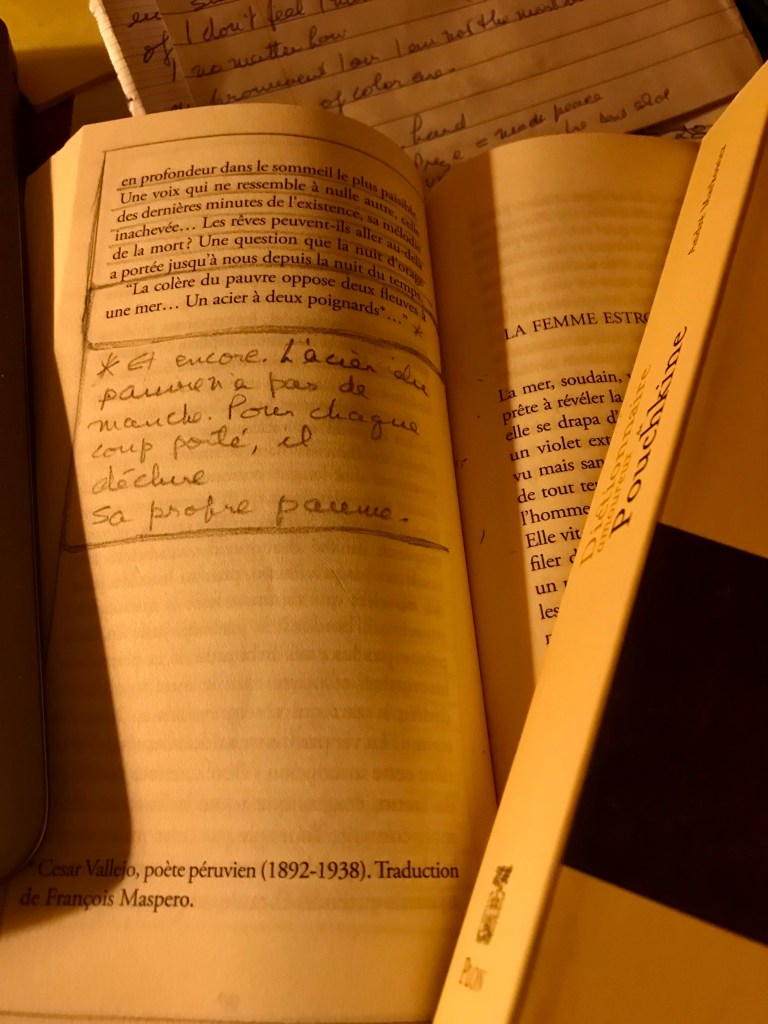 of I don't feel I
no matter how
prominent I am I am not the most
of color are.
hard
= made peace
en profondeur dans le sommeil le plus paisible
Une voix qui ne ressemble à nulle autre, celle
des dernières minutes de l'existence, sa mélodie
inachevée… Les rêves peuvent-ils aller au-delà
de la mort ? Une question que la nuit d'orage
a portée jusqu'à nous depuis la nuit du temps.
"La colère du pauvre oppose deux fleuves à
une mer… Un acier à deux poignards*…" *
* Et encore. L'acier du
pauvre n'a pas de
manche. Pour chaque
coup porté, il
déchire
sa propre paume.
* Cesar Vallejo, poète péruvien (1892-1938). Traduction
de François Maspero.
LA FEMME ESTRO
La mer, soudain,
prête à révéler la
elle se drapa d'
un violet ext
vu mais san
de tout te
l'homme
Elle vit
filer d
un
les
Dictionnaire
amoureux
Pouchkine
PLON